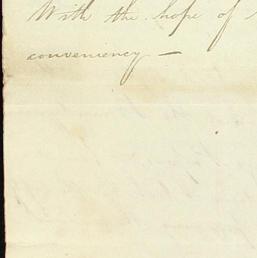 With the hope of
conveniency —